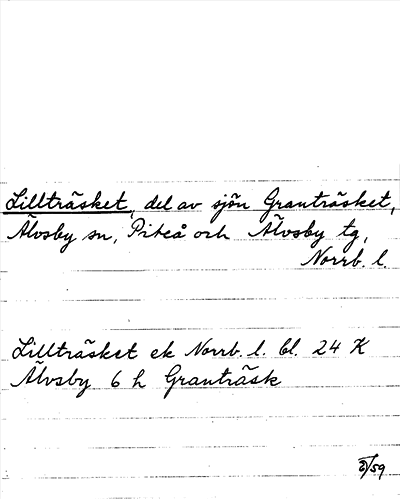 Lillträsket, del av sjön Granträsket,
Älvsby sn, Piteå och Älvsby tg,
Norrb. l.
Lillträsket ek Norrb. l. bl. 24 K
Älvsby 6 h Granträsk